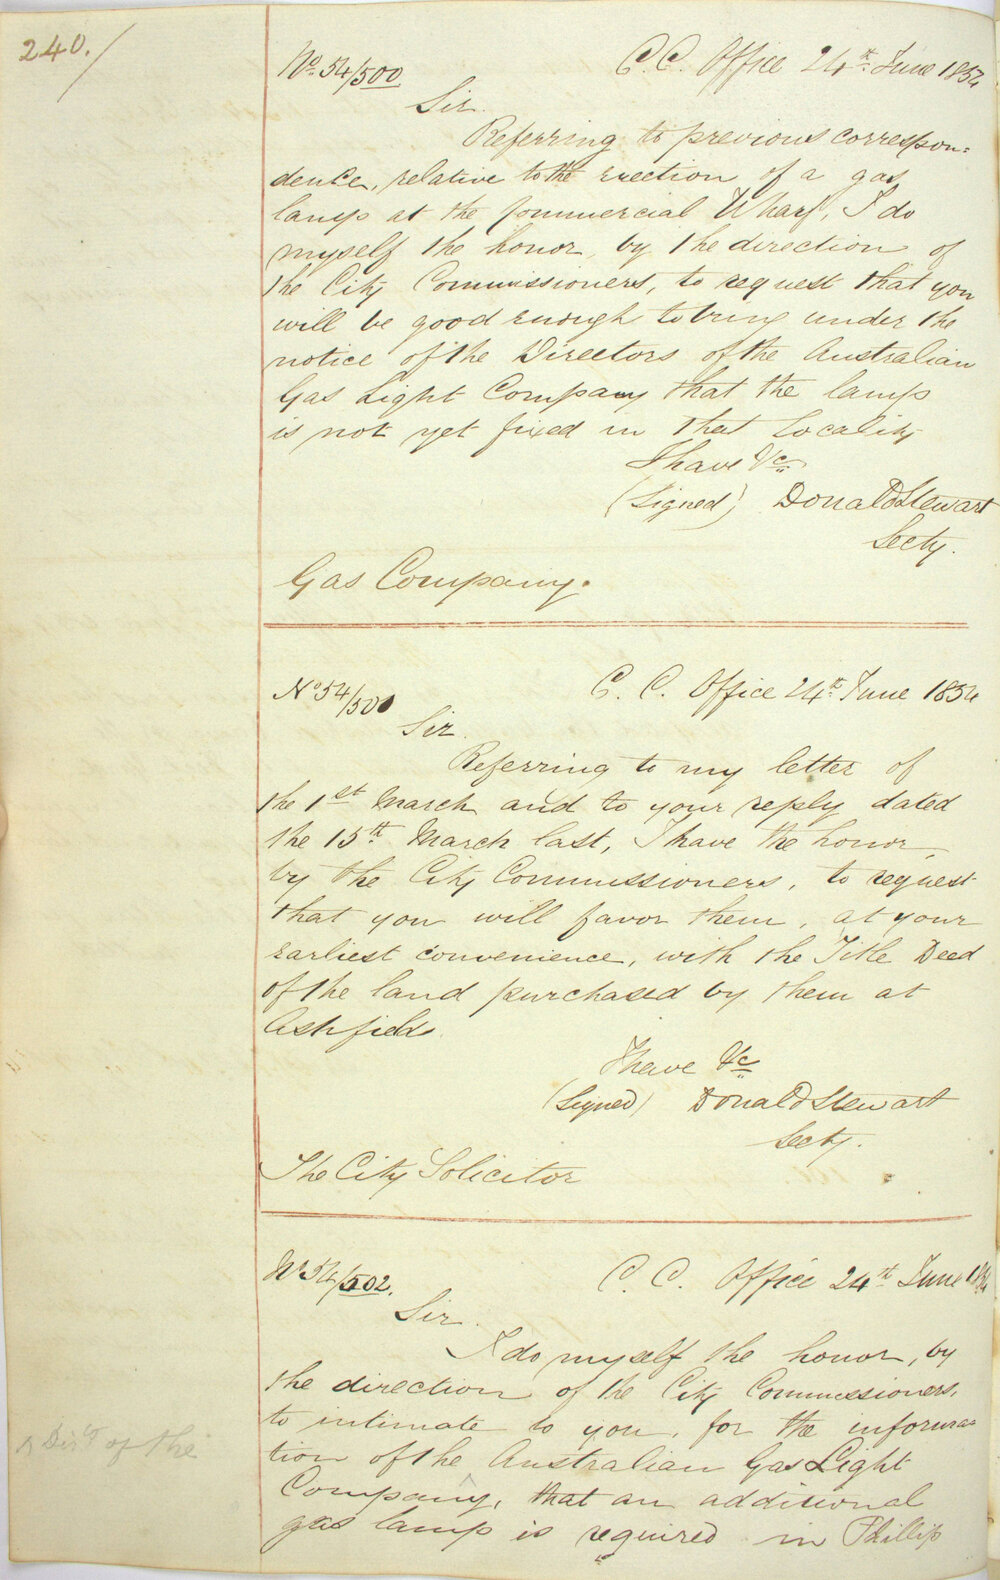 240.
No. 54/500
C.C. Office 24th June 1854
Sir.
Referring to previous correspon=
dence, relative to the erection of a gas
lamp at the Commercial Wharf, I do
myself the honor, by the direction of
the City Commissioners, to request that you
will be good enough to bring under the
notice of the Directors of the Australian
Gas Light Company that the lamp
is not yet fixed in that Locality
I have &c
(Signed) Donald Stewart
Secty.
Gas Company.
No 54/501
C. C. Office 24th June 1854
Sir.
Referring to my letter of
the 1st March and to your reply dated
the 15th March last, I have the honor,
by the City Commissioners, to request
that you will favor them, at your
earliest convenience, with the Title Deed
of the land purchased by them at
Ashfield.
I have &c
(Signed) Donald Stewart
Secty.
The City Solicitor
No 54/502.
C. C. Office 24th June 1854
Sir.
I do myself the honor, by
the direction of the City Commissioners,
to intimate to you, for the informa=
tion of the Australian Gas Light
Company, that an additional
gas lamp is required in Phillip
of the